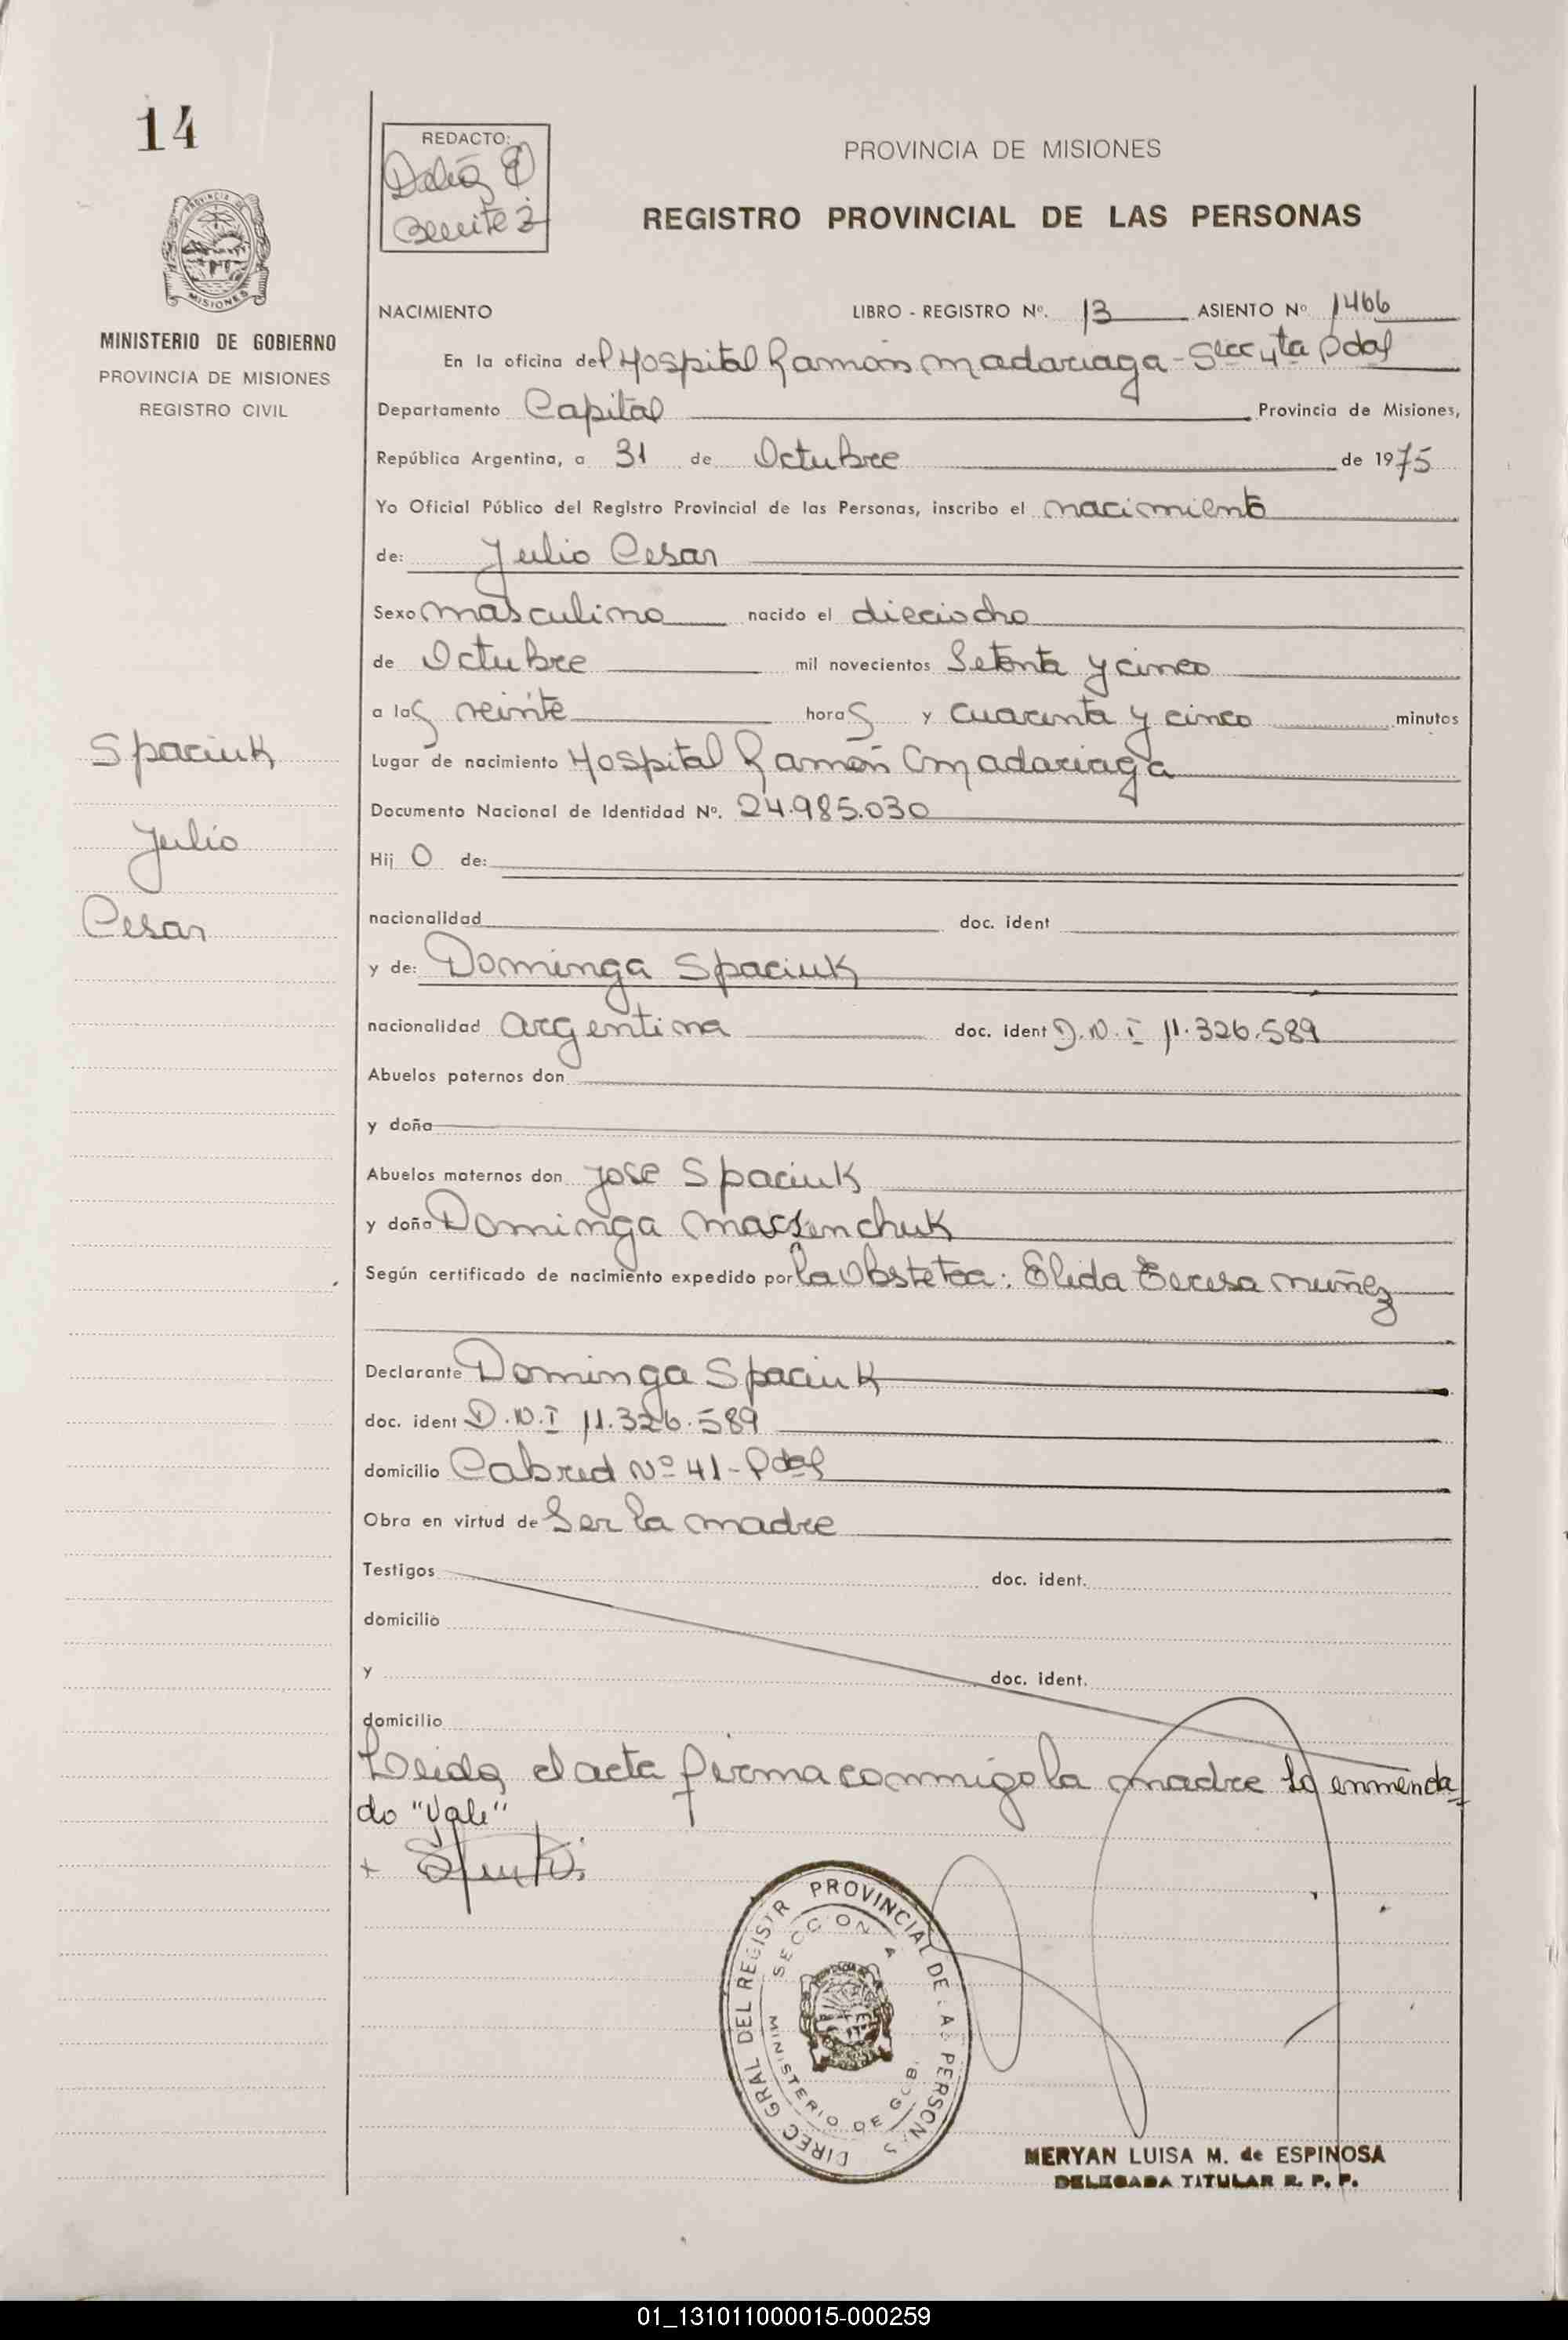 14
REDACTO:
Benitez
PROVINCIA DE MISIONES
REGISTRO PROVINCIAL DE LAS PERSONAS
MINISTERIO DE GOBIERNO
PROVINCIA DE MISIONES
REGISTRO CIVIL
Spaciuk
Julio
Cesar
NACIMIENTO LIBRO - REGISTRO Nº. 13 ASIENTO Nº 1466
En la oficina del Hospital Ramón Madariaga - Secc 4ta Pdas
Departamento Capital Provincia de Misiones,
República Argentina, a 31 de Octubre de 1975
Yo Oficial Público del Registro Provincial de las Personas, inscribo el nacimiento
de: Julio Cesar
Sexo masculino nacido el dieciocho
de Octubre mil novecientos Setenta y cinco
a las veinte horas y cuarenta y cinco minutos
Lugar de nacimiento Hospital Ramón Madariaga
Documento Nacional de Identidad Nº. 24.985.030
Hij o de:
nacionalidad doc. ident
y de: Dominga Spaciuk
nacionalidad argentina doc. ident D.N.I 11.326.589
Abuelos paternos don
y doña
Abuelos maternos don Jose Spaciuk
y doña Dominga
Según certificado de nacimiento expedido por la Obstetra: Elida Teresa Muñez
Declarante Dominga Spaciuk
doc. ident D.N.I 11.326.589
domicilio Cabred Nº 41 - Pdas
Obra en virtud de Ser la madre
Testigos doc. ident.
domicilio
y doc. ident.
domicilio
Leida el acta firma conmigo la madre lo enmenda
do "Vale"
DIREC GRAL DEL REGISTR PROVINCIAL DE LAS PERSONAS
SECCION A
MINISTERIO DE GOB.
MERYAN LUISA M. de ESPINOSA
DELEGADA TITULAR R. P. P.
01_131011000015-000259